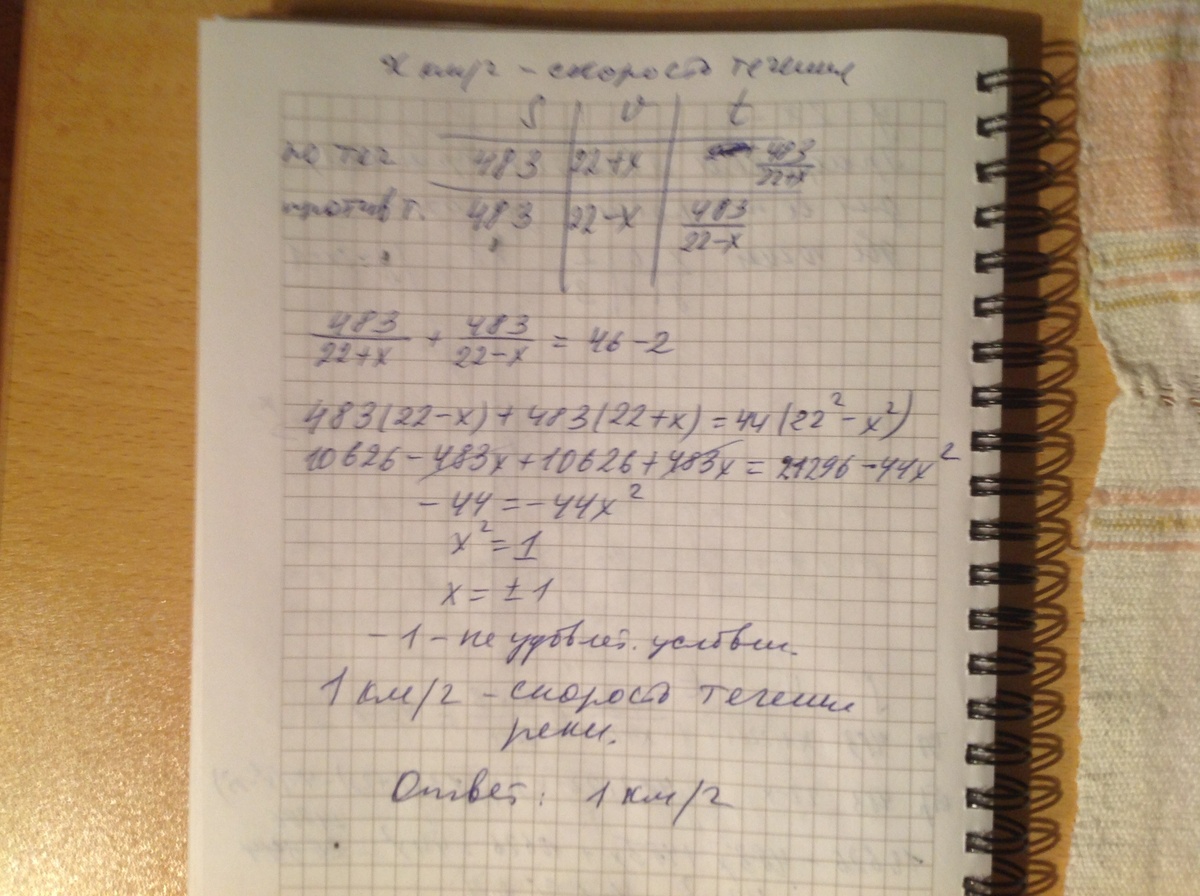 x км/ч - скорость течения
S v t
по теч 483 22+x 483/(22+x)
против т. 483 22-x 483/(22-x)
483/(22+x) + 483/(22-x) = 46-2
483(22-x)+483(22+x)=44(22²-x²)
10626-483x+10626+483x=21296-44x²
-44=-44x²
x²=1
x=±1
-1-не удовлет. услови.
1 км/ч - скорость течения
реки.
Ответ: 1 км/ч